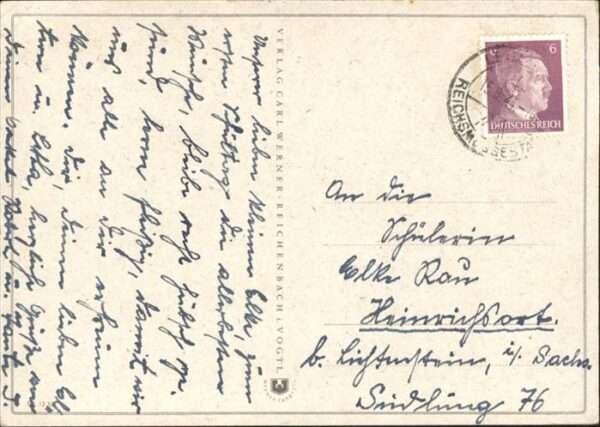 Unserer lieben kleinen Elke, zum
ersten Schultage die allerbesten
Wünsche, bleibe recht hübsch ge-
sund, lerne fleißig, damit wir
uns alle an Dir erfreuen
können. Dir, Deinen lieben El-
tern u. herzliche Grüße von
Deinem Onkel u. Tante
VERLAG CARL WERNER · REICHENBACH I. VOGTL.
6
DEUTSCHES REICH
REICHSMESSESTADT
An die
Schülerin
Elke Rau
Heinrichsort.
b. Lichtenstein, i/ Sachs.
Siedlung 76